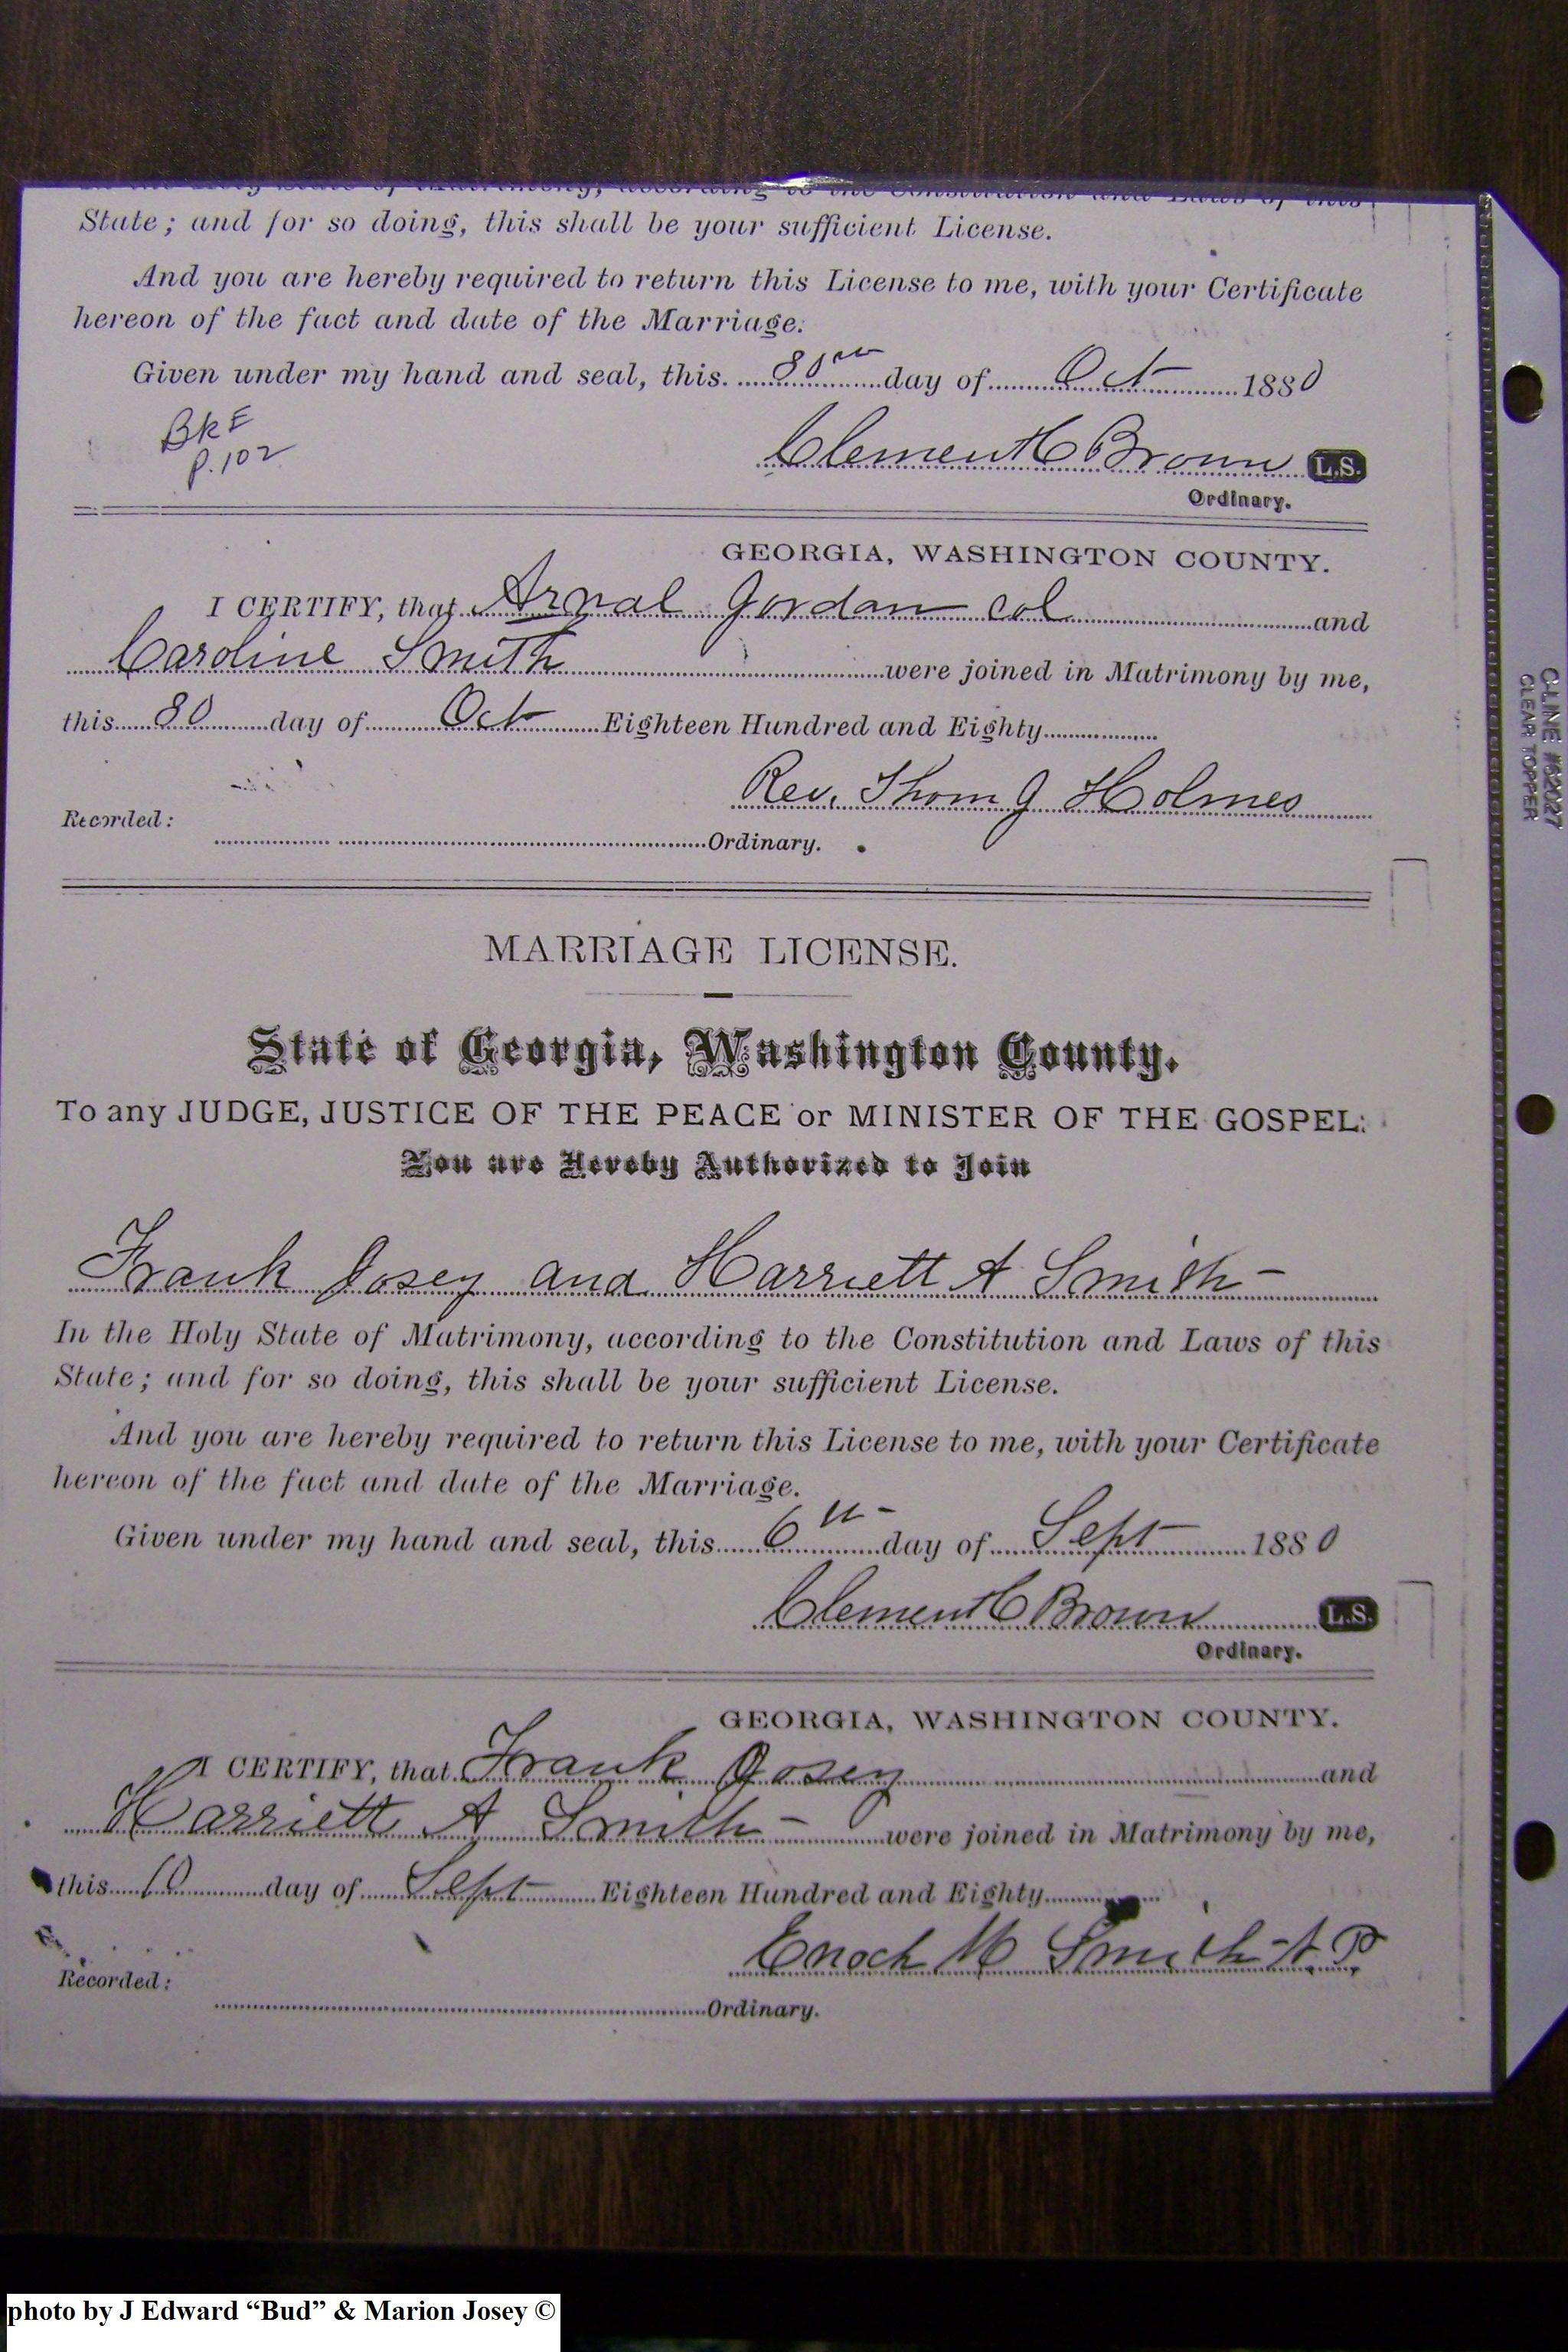 In the Holy State of Matrimony, according to the Constitution and Laws of this
State; and for so doing, this shall be your sufficient License.
And you are hereby required to return this License to me, with your Certificate
hereon of the fact and date of the Marriage.
Given under my hand and seal, this 30th day of Oct 1880
Bk E
p. 102
Clement C Brown L.S.
Ordinary.
GEORGIA, WASHINGTON COUNTY.
I CERTIFY, that Arnal Jordan col and
Caroline Smith were joined in Matrimony by me,
this 30 day of Oct Eighteen Hundred and Eighty
Rev. Thom J Holmes
Recorded:
Ordinary.
MARRIAGE LICENSE.
State of Georgia, Washington County.
To any JUDGE, JUSTICE OF THE PEACE or MINISTER OF THE GOSPEL:
You are Hereby Authorized to Join
Frank Josey and Harriett A Smith
In the Holy State of Matrimony, according to the Constitution and Laws of this
State; and for so doing, this shall be your sufficient License.
And you are hereby required to return this License to me, with your Certificate
hereon of the fact and date of the Marriage.
Given under my hand and seal, this 6th day of Sept 1880
Clement C Brown L.S.
Ordinary.
GEORGIA, WASHINGTON COUNTY.
I CERTIFY, that Frank Josey and
Harriett A Smith were joined in Matrimony by me,
this 10 day of Sept Eighteen Hundred and Eighty
Enoch M Smith
Recorded:
Ordinary.
C-LINE #62027
CLEAR TOPPER
photo by J Edward “Bud” & Marion Josey ©